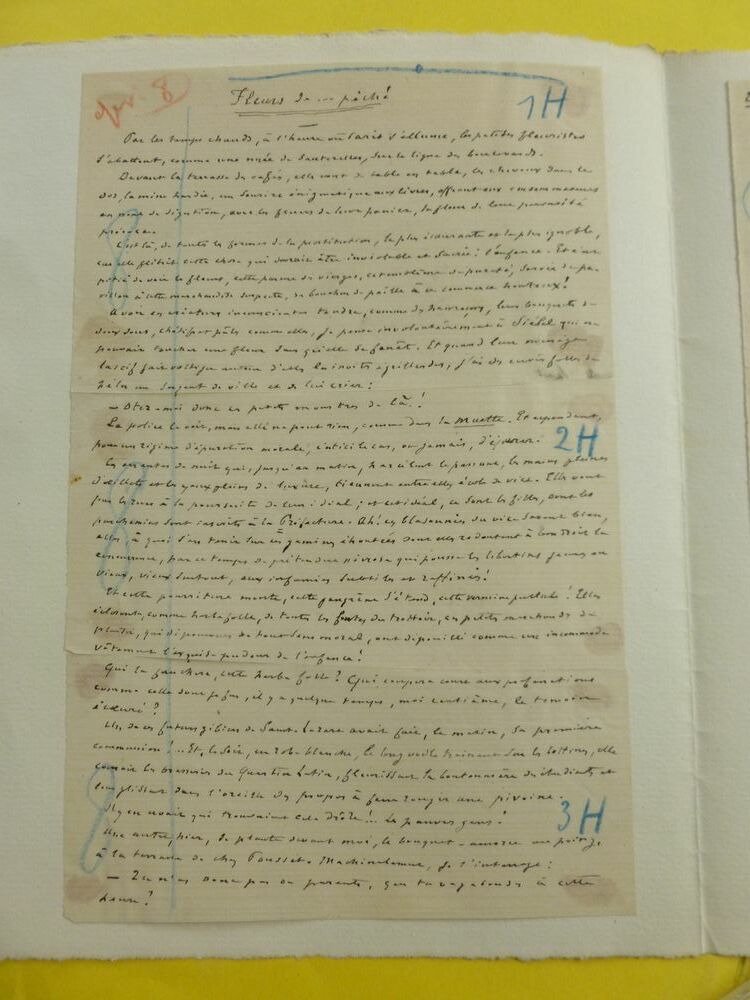 Fleurs de péché
1H
Par les temps chauds, à l'heure où Paris s'allume, les petites fleuristes
s'abattent, comme une nuée de sauterelles, sur la ligne des boulevards.
Devant la terrasse des cafés, elles vont de table en table, les cheveux dans le
dos, la mine hardie, un sourire énigmatique aux lèvres, offrant aux consommateurs
en mal de digestion, avec les fleurs de leur panier, la fleur de leur perversité
précoce.
C'est là, de toutes les formes de la prostitution, la plus écœurante et la plus ignoble,
car elle flétrit cette chose qui devrait être inviolable et sacrée : l'enfance. Et c'est
pitié de voir la fleur, cette parure des vierges, cet emblème de pureté, servir de pa-
villon à cette marchandise suspecte, de bouchon de paille à ce commerce honteux !
A voir ces créatures inconscientes tendre, comme des hameçons, leurs bouquets de
deux sous, chétifs et pâles comme elles, je pense involontairement à Siebel qui ne
pouvait toucher une fleur sans qu'elle se fanât. Et quand leur manège
lascif fait voltiger autour d'elles les invites égrillardes, j'ai des envies folles de
héler un sergent de ville et de lui crier :
— Otez-moi donc ces petits monstres de là !
La police le voit, mais elle ne peut rien, comme dans la muette. Et cependant,
pour un régime d'épuration morale, c'était le cas, ou jamais, d'épurer !
2H
Les errantes de nuit qui, jusqu'au matin, harcèlent le passant, les mains pleines
d'œillets et les yeux pleins de luxure, tiennent entre elles école de vice. Elles vont
par les rues à la poursuite de leur idéal ; et cet idéal, ce sont les filles, dont les
parchemins sont inscrits à la Préfecture. Ah ! ces blasonnées du vice savent bien,
elles, à quoi s'en tenir sur ces gamines éhontées dont elles redoutent à bon droit la
concurrence, par ce temps de prétendue névrose qui pousse les libertins jeunes ou
vieux, vieux surtout, aux infamies subtiles et raffinées !
Et cette pourriture monte, cette gangrène s'étend, cette vermine pullule ! Elles
éclosent, comme herbe folle, de toutes les fentes du trottoir, ces petites marchandes de
plaisir, qui dépourvues de tout sens moral, ont dépouillé comme un incommode
vêtement l'exquise pudeur de l'enfance !
Qui la fauchera, cette herbe folle ? Qui coupera court aux profanations
comme celle dont je fus, il y a quelque temps, moi centième, le témoin
écœuré ?
Une de ces futurs gibiers de Saint-Lazare avait fait, le matin, sa première
communion !.. Et, le soir, en robe blanche, le long voile traînant sur les bottines, elle
courait les brasseries du Quartier Latin, fleurissant la boutonnière des étudiants et
leur glissant dans l'oreille des propos à faire rougir une pivoine.
Il y en avait qui trouvaient cela drôle !... Les pauvres gens !
3H
Une autre, hier, se plante devant moi, le bouquet-amorce au poing,
à la terrasse de chez Pousset. Machinalement, je l'interroge :
— Tu n'as donc pas de parents, que tu vagabondes à cette
heure ?